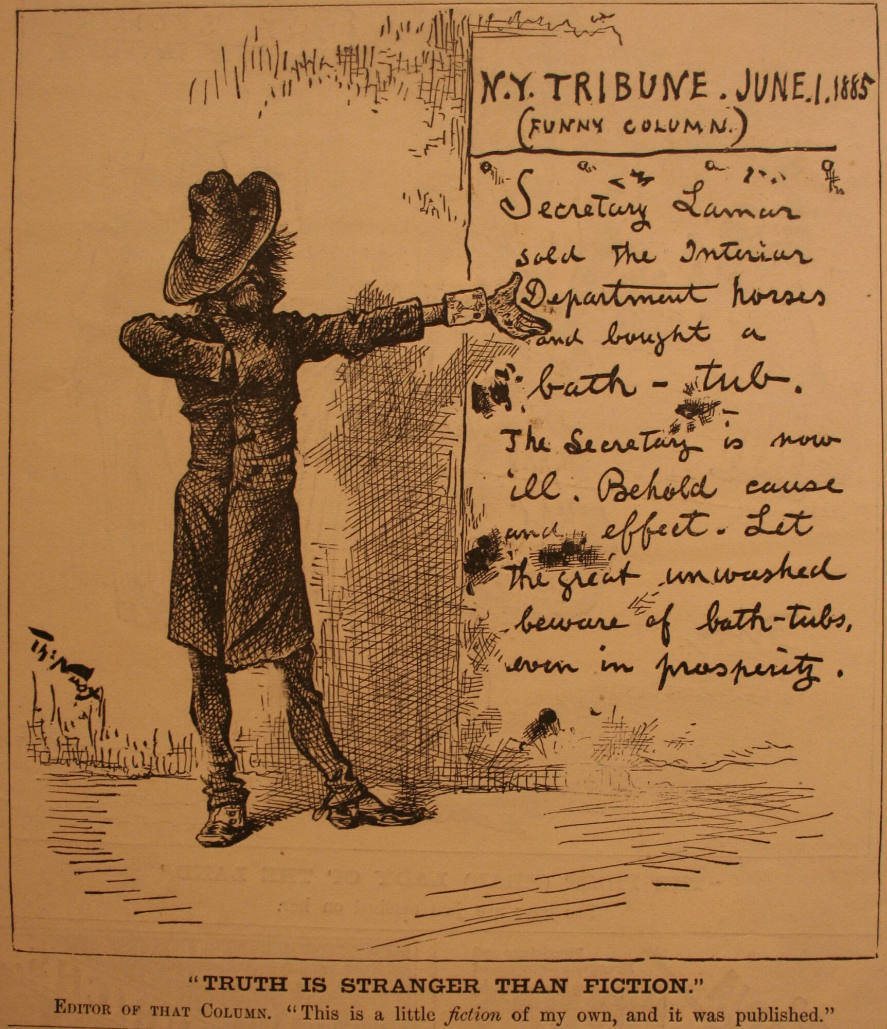 N.Y. TRIBUNE. JUNE.1.1885
(FUNNY COLUMN.)
Secretary Lamar
sold the Interior
Department horses
and bought a
bath-tub.
The Secretary is now
ill. Behold cause
and effect. Let
the great unwashed
beware of bath-tubs,
even in prosperity.
"TRUTH IS STRANGER THAN FICTION."
EDITOR OF THAT COLUMN. "This is a little fiction of my own, and it was published."